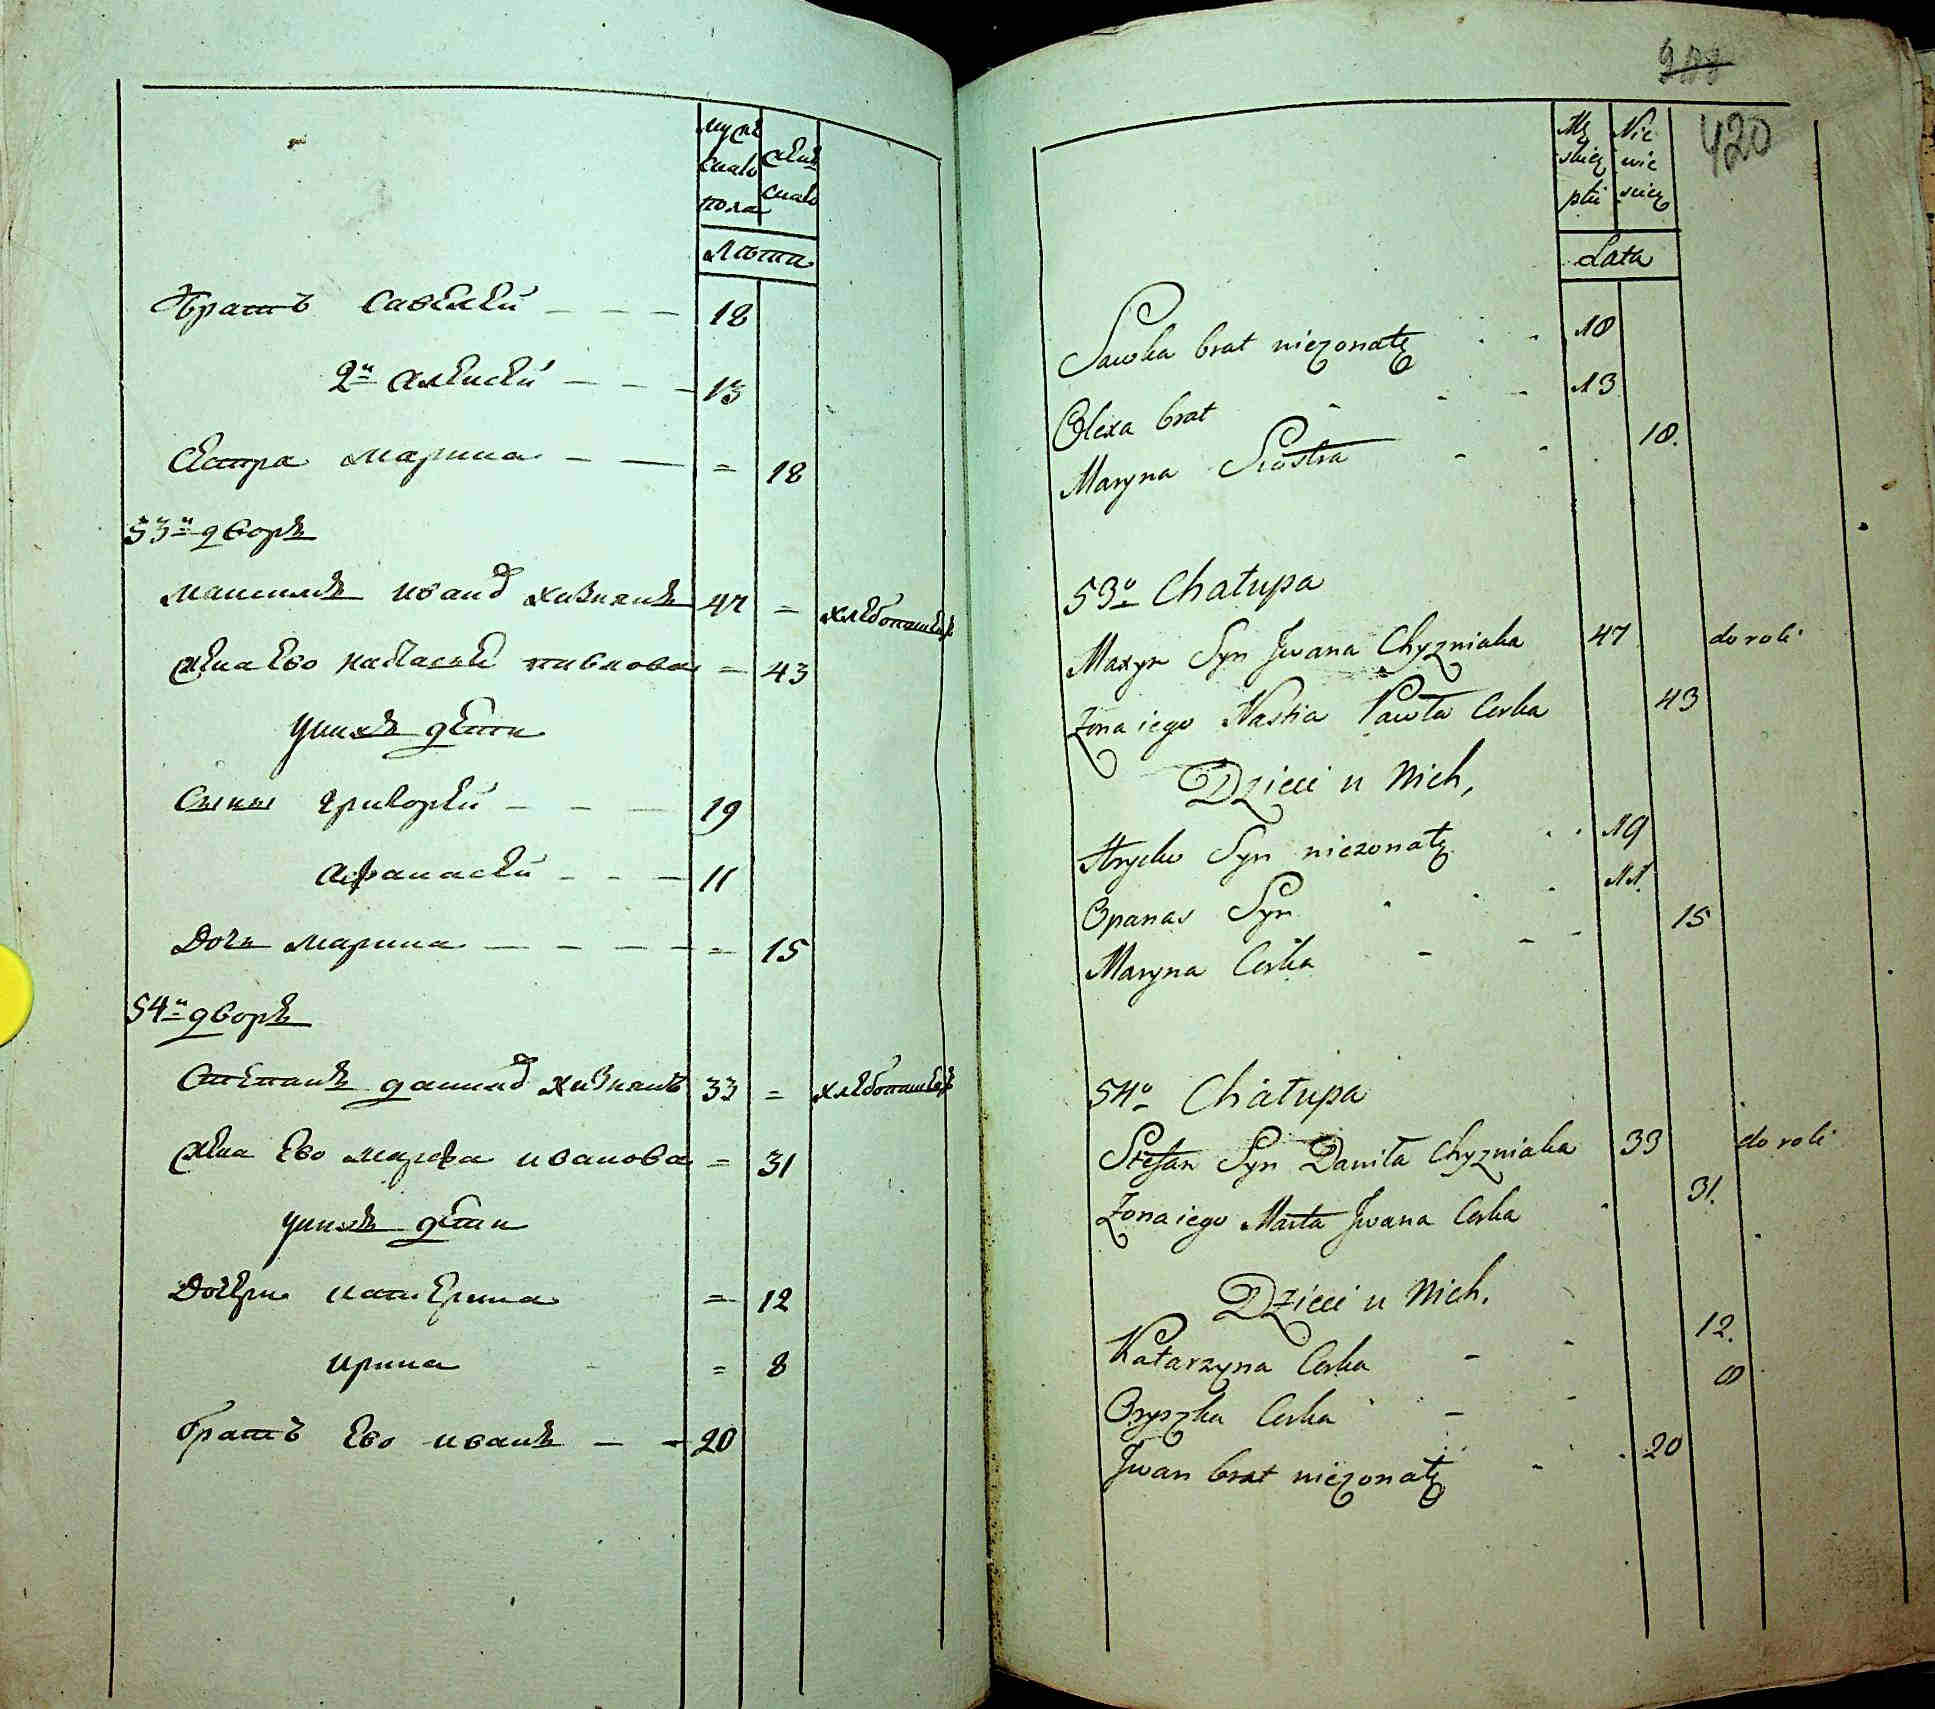 муск женс
скаго скаго
пола
Лѣта
братъ Савелей 18
2й Алексей 13
Сестра Марина = 18
53й дворъ
Максимъ Иванд Хизнякъ 47 = хлебопашецъ
жена Ево Настасья = 43
уних дети
Сыны Григорей 19
Афанасей 11
Дочь Марина = 15
54й дворъ
Степанъ данилд Хизнякъ 33 = хлебопашецъ
жена Ево Марфа иванова = 31
уних дети
Дочери Катерина = 12
Ирина = 8
братъ Ево иванъ 20
420
Mę Nie
skiej wie
płci sciej
Lata
Sawka brat niezonatę 18
Olexa brat 13
Maryna Siostra 18.
53o Chałupa
Maxym Syn Jwana Chyzniaka 47 do roli
Zona iego Nastia Pawła Corka 43
Dzieci u Nich,
Hrycko Syn niezonatę 19
Opanas Syn 11
Maryna Corka 15
54o Chałupa
Stefan Syn Daniła Chyzniaka 33 do roli
Zona iego Marta Jwana Corka 31.
Dzieci u Nich.
Katarzyna Corka 12.
Oryszka Corka 8
Jwan brat niezonatę 20